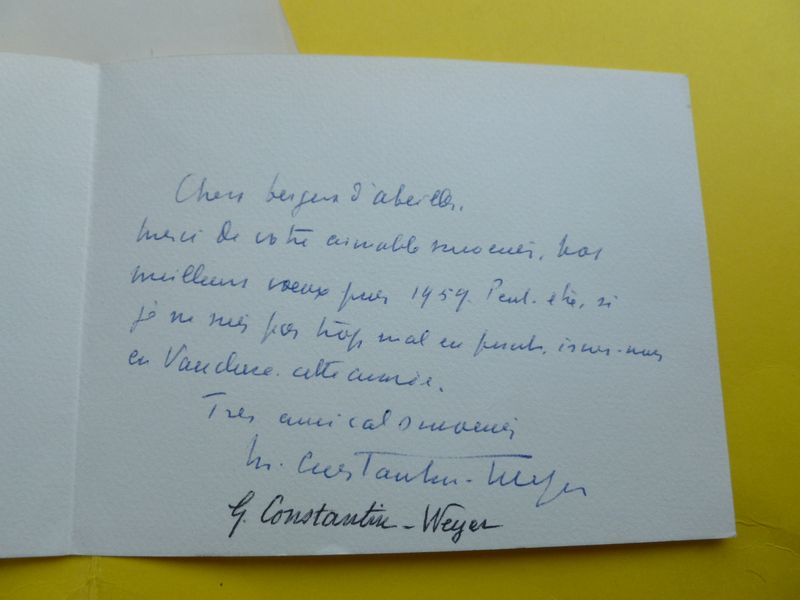 Chers bergers d'abeilles,
merci de votre aimable souvenir, nos
meilleurs voeux pour 1959. Peut-être, si
je ne suis pas trop mal en point, irons-nous
en Vaucluse cette année.
Très amical souvenir
M. Constantin-Weyer
G. Constantin-Weyer